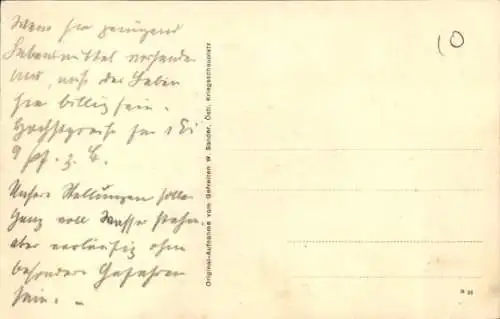 Wenn hier genügend
Lebensmittel vorhanden
sind, muß das Leben
hier billig sein.
Höchstpreise für 1 Ei
9 Pf. z. B.
Unsere Stellungen sollen
ganz voll Wasser stehn,
aber vorläufig ohne
besondere Gefahren
sein. –
Original-Aufnahme vom Gefreiten W. Sander, Östl. Kriegsschauplatz
10